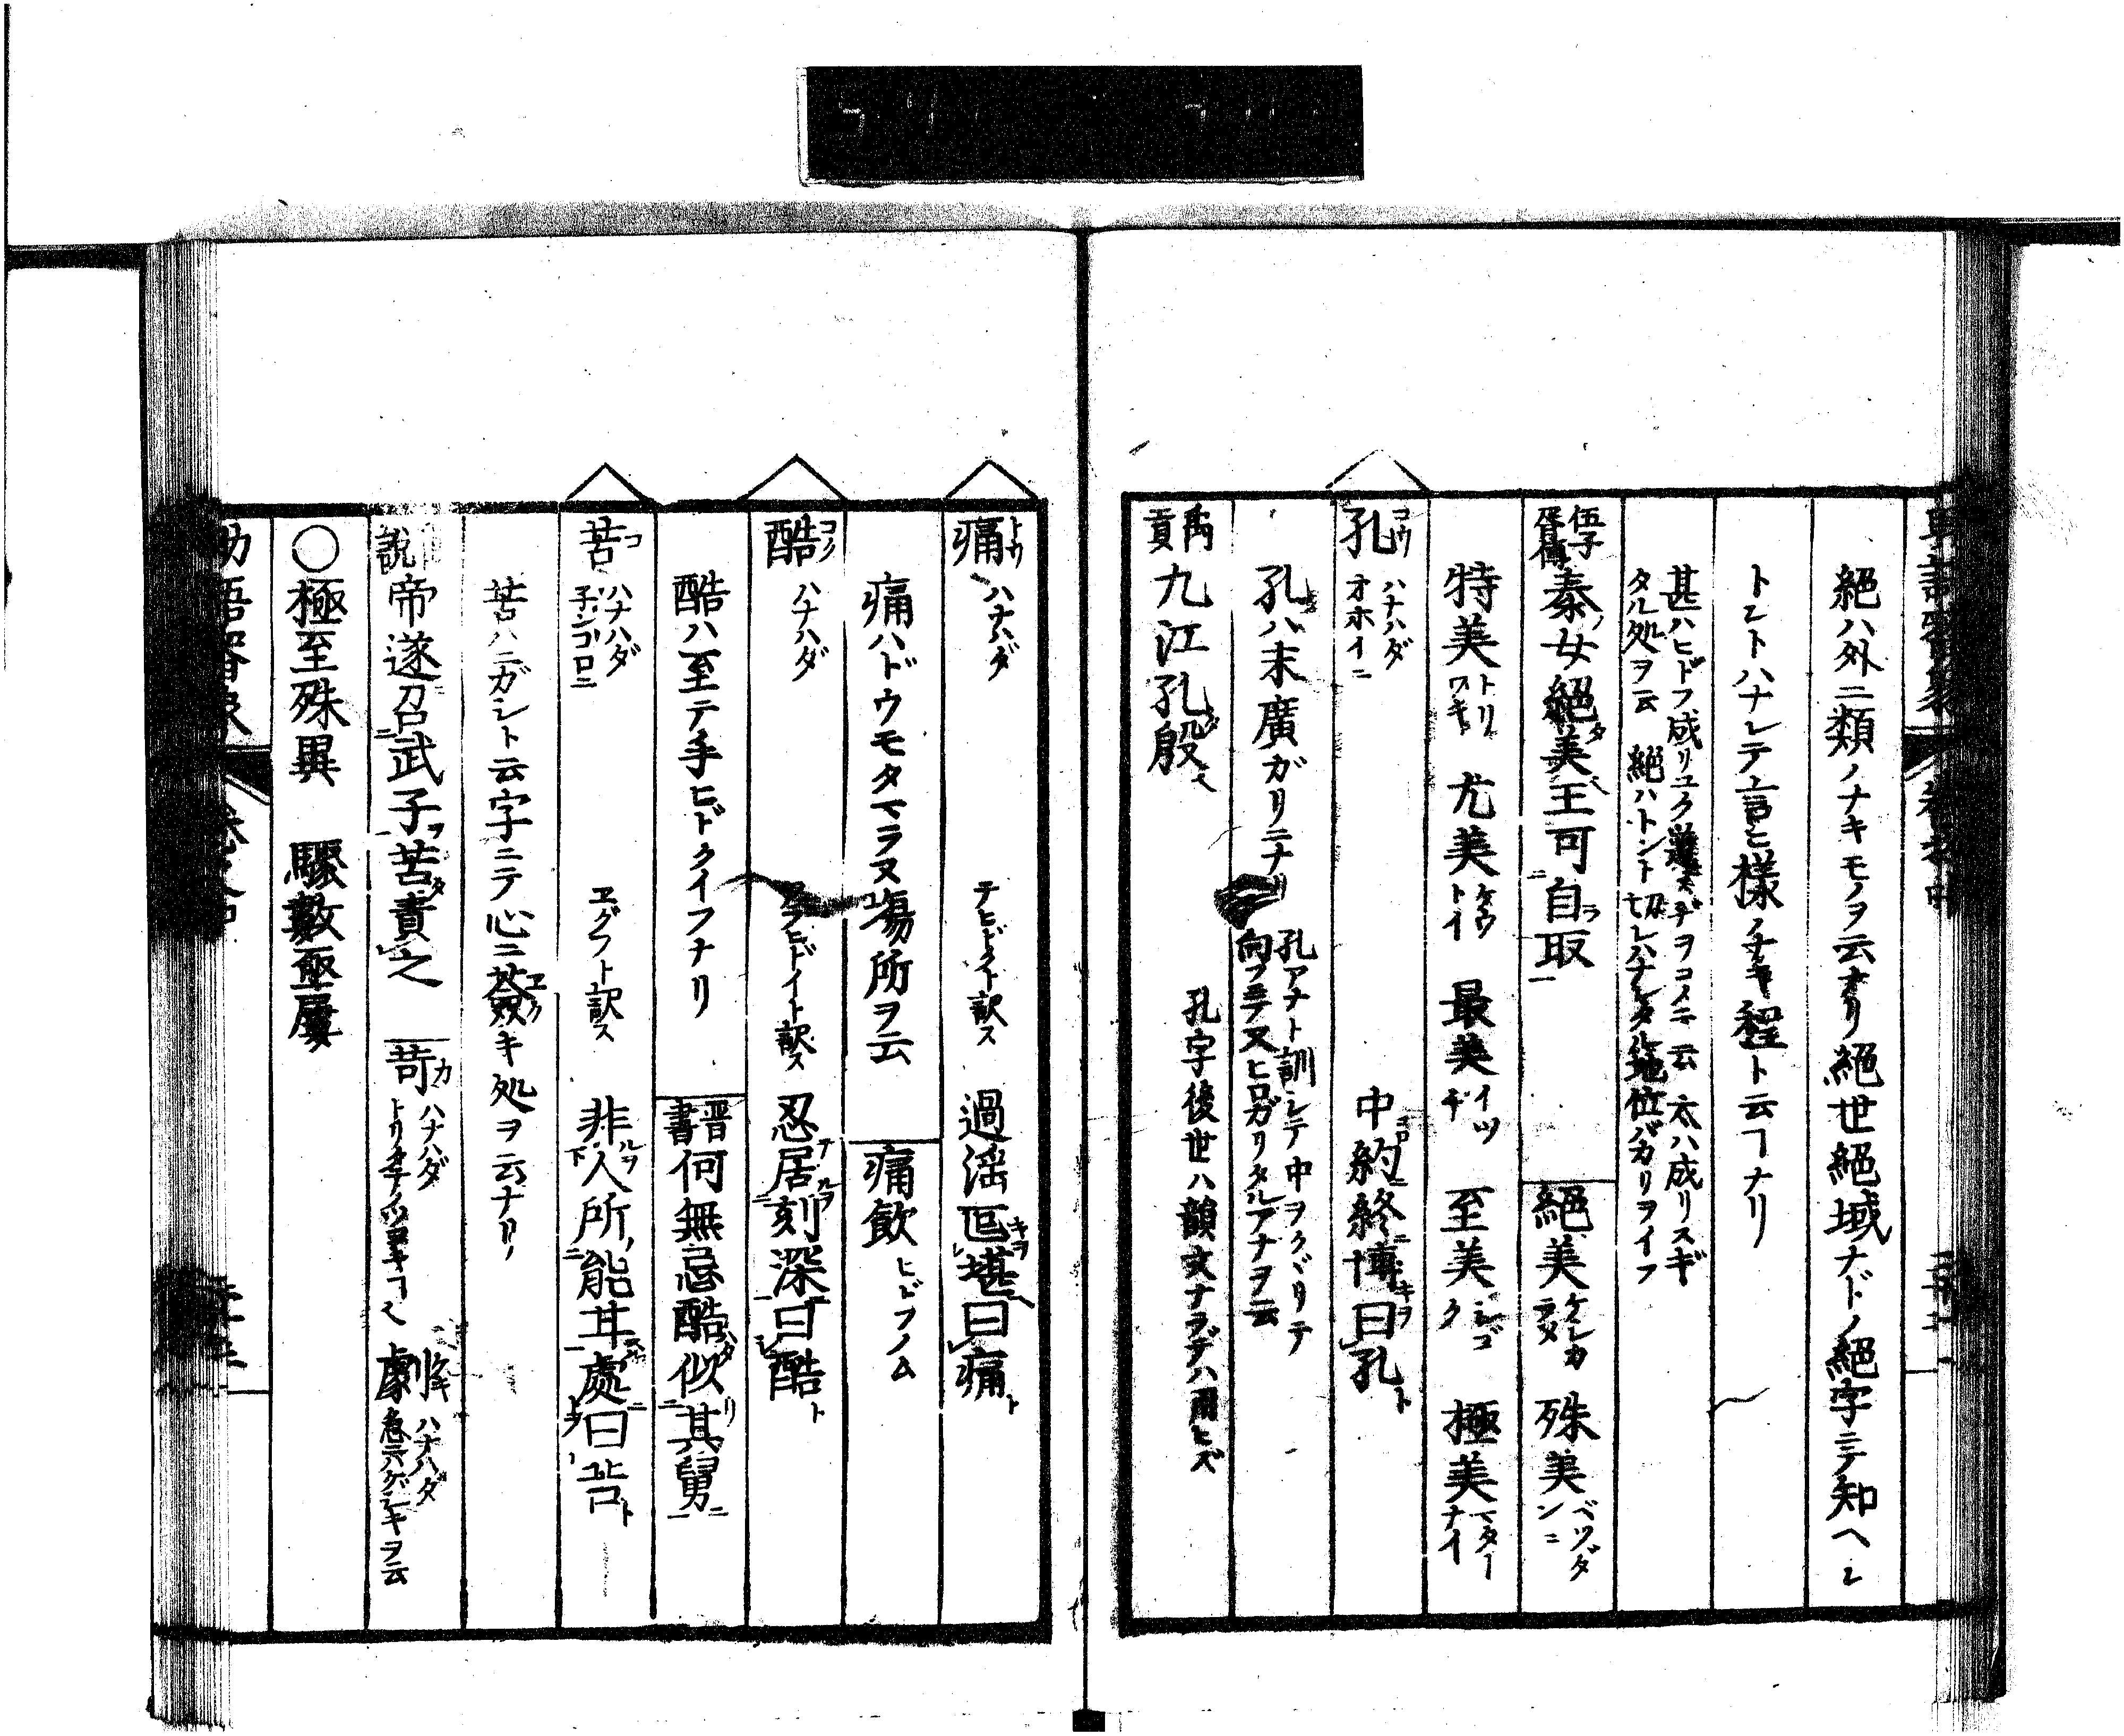 絕ハ外ニ類ノナキモノヲ云ナリ絕世絕域ナドノ絕字ニテ知ヘシ
トントハナレテ言ヒ様ノナキ程ト云ヿナリ
甚ハヒドフ成リユク
ヲ云太ハ成リスギ
タル処ヲ云 絕ハトント切レハナレタル地位バカリヲイフ
伍子
胥傳
秦女絕美王可自取
絕美
殊美ベツダンニ
特美トリワキ 尤美 最美イツチ 至美シゴク 極美
孔コウ ハナハダ
オホイニ 中約終博曰孔
孔ハ末廣ガリニナリ
孔アナト訓シテ中ヲクヾリテ
向フニテ又ヒロガリタルアナヲ云
禹
貢
九江孔殷 孔字後世ハ韻文ナラデハ用ヒズ
痛トウ ハナハダ テヒドクト訳ス 過淫叵堪曰痛
痛ハドウモタマラヌ場所ヲ云 痛飲ヒドフノム
酷コク ハナハダ 訳ス 忍居刻深曰酷
酷ハ至テ手ヒドクイフナリ
晋
書
何無忌酷似其舅
苦コ ハナハダ
子ンゴロニ ヱグフト訳ス 非人所能甘處曰苦
苦ハニガシト云字ニテ心ニ蘞キ処ヲ云ナリ
説
帝遂召武子苦責之
苛カ ハナハダ
劇 ハナハダ
〇極至殊異 驟數亟屢